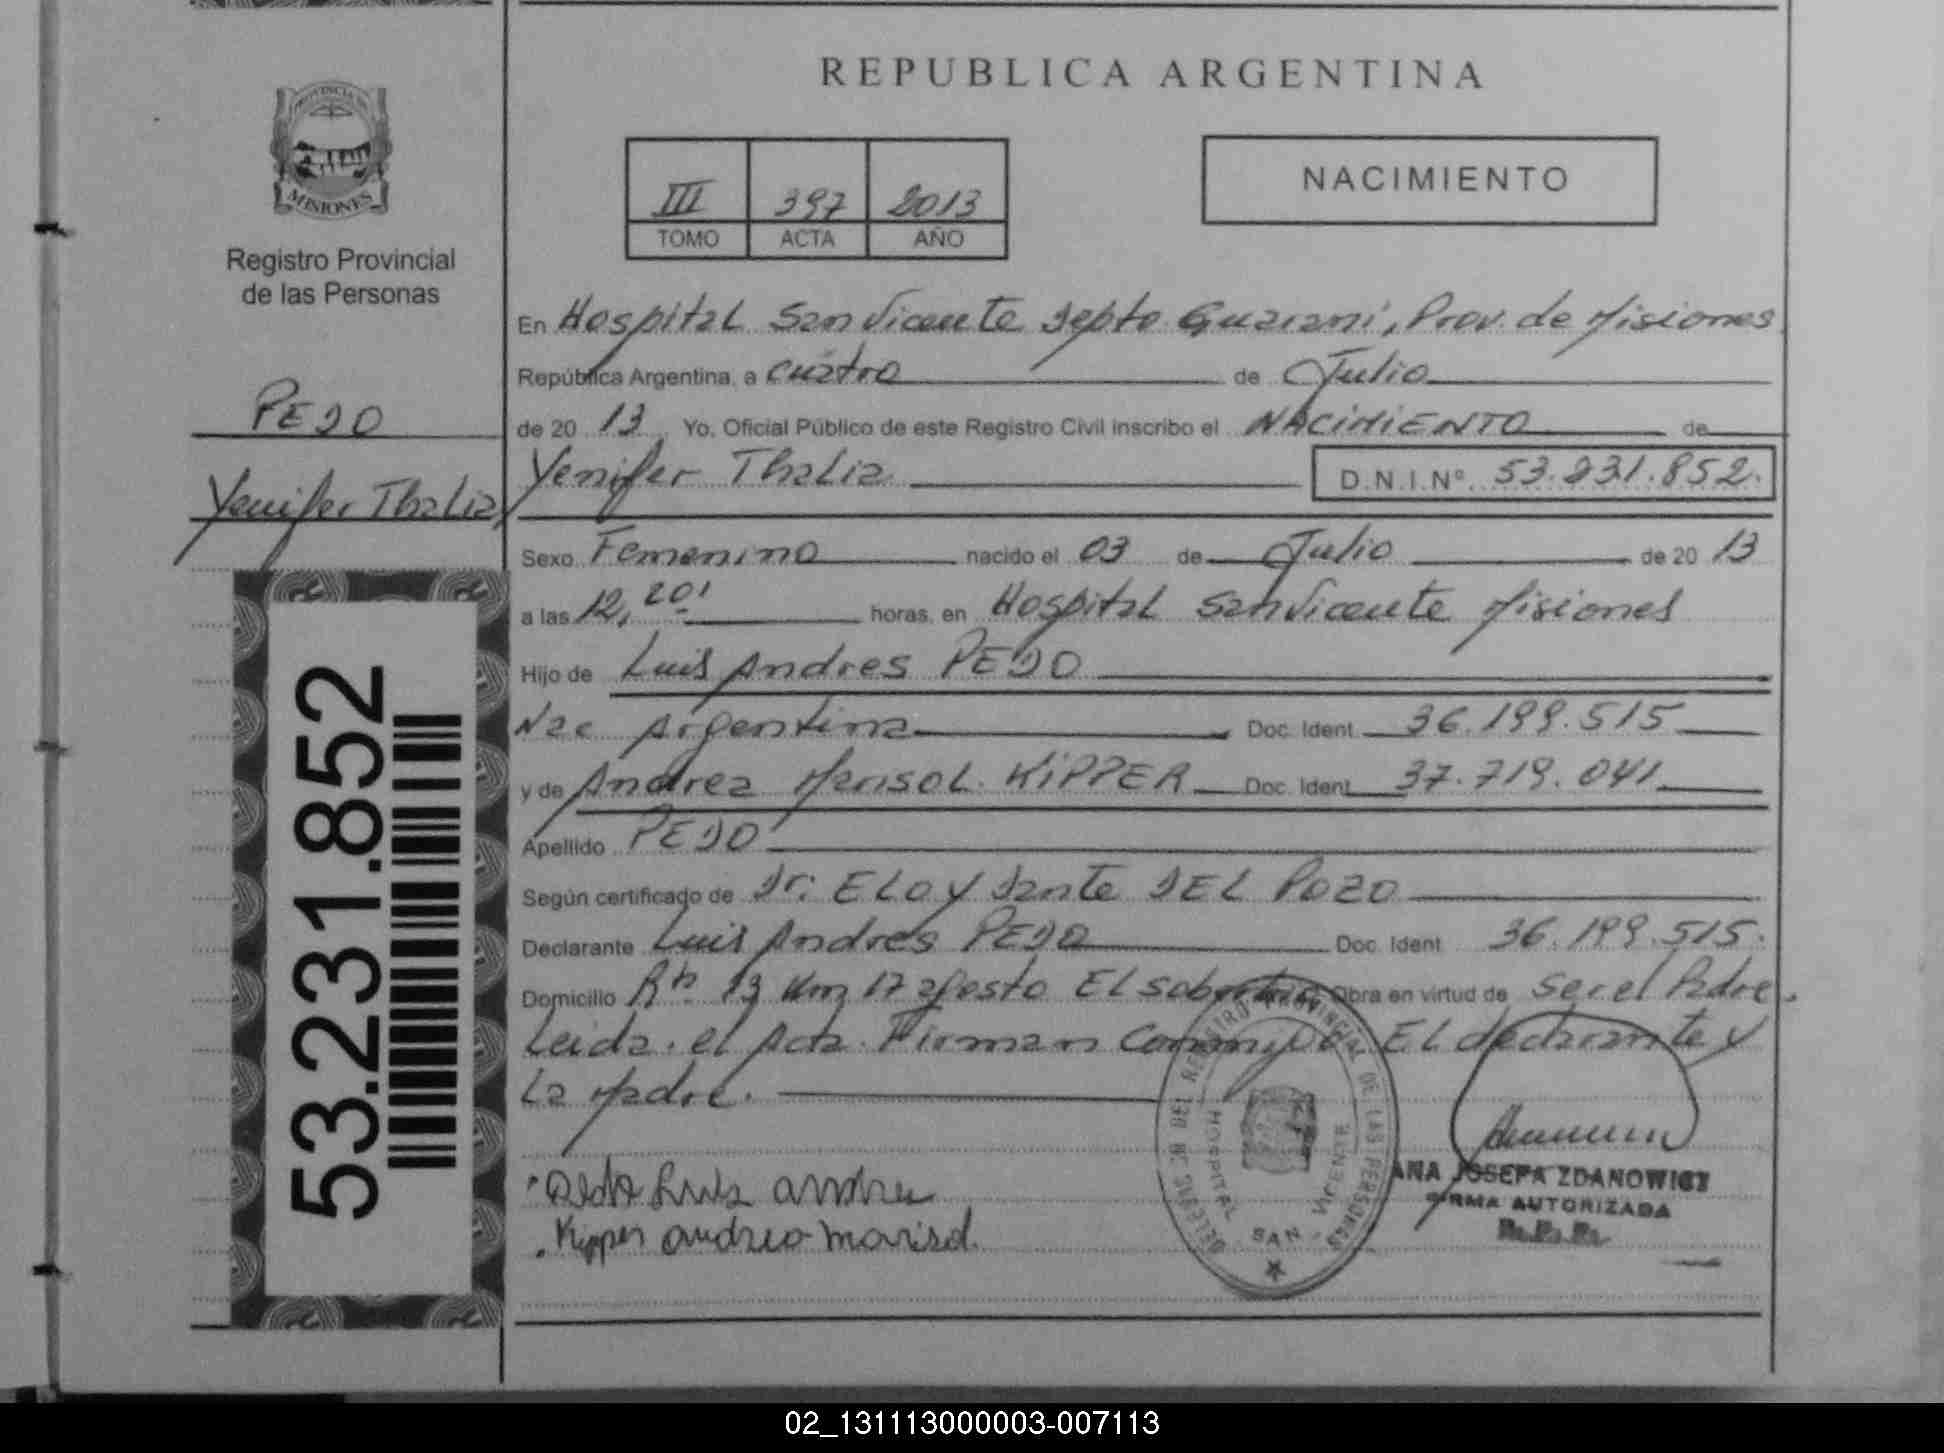 REPUBLICA ARGENTINA
PROVINCIA DE
MISIONES
Registro Provincial
de las Personas
III 397 2013
TOMO ACTA AÑO
NACIMIENTO
PEDO
Yenifer Thalia
53.231.852
En Hospital San Vicente Depto Guarani, Prov. de Misiones
República Argentina, a cuatro de Julio
de 20 13 Yo, Oficial Público de este Registro Civil inscribo el NACIMIENTO de
Yenifer Thalia D.N.I.Nº 53.231.852.
Sexo Femenino nacido el 03 de Julio de 20 13
a las 12,20' horas, en Hospital San Vicente Misiones
Hijo de Luis Andres PEDO
Nac Argentina Doc. Ident. 36.199.515
y de Andrea Marisol KIPPER Doc. Ident. 37.719.041
Apellido PEDO
Según certificado de Dr: ELOY Dante DEL POZO
Declarante Luis Andres PEDO Doc. Ident. 36.199.515.
Domicilio Rn 13 Km 17 agosto El Obra en virtud de ser el Padre.
Leida el Acta Firman Conmigo El declarante y
La Madre.
Luis
Kipper andrea marisol
DELEGAC DEL REGISTRO PROVINCIAL DE LAS PERSONAS
HOSPITAL SAN VICENTE
ANA JOSEFA ZDANOWICZ
FIRMA AUTORIZADA
02_131113000003-007113